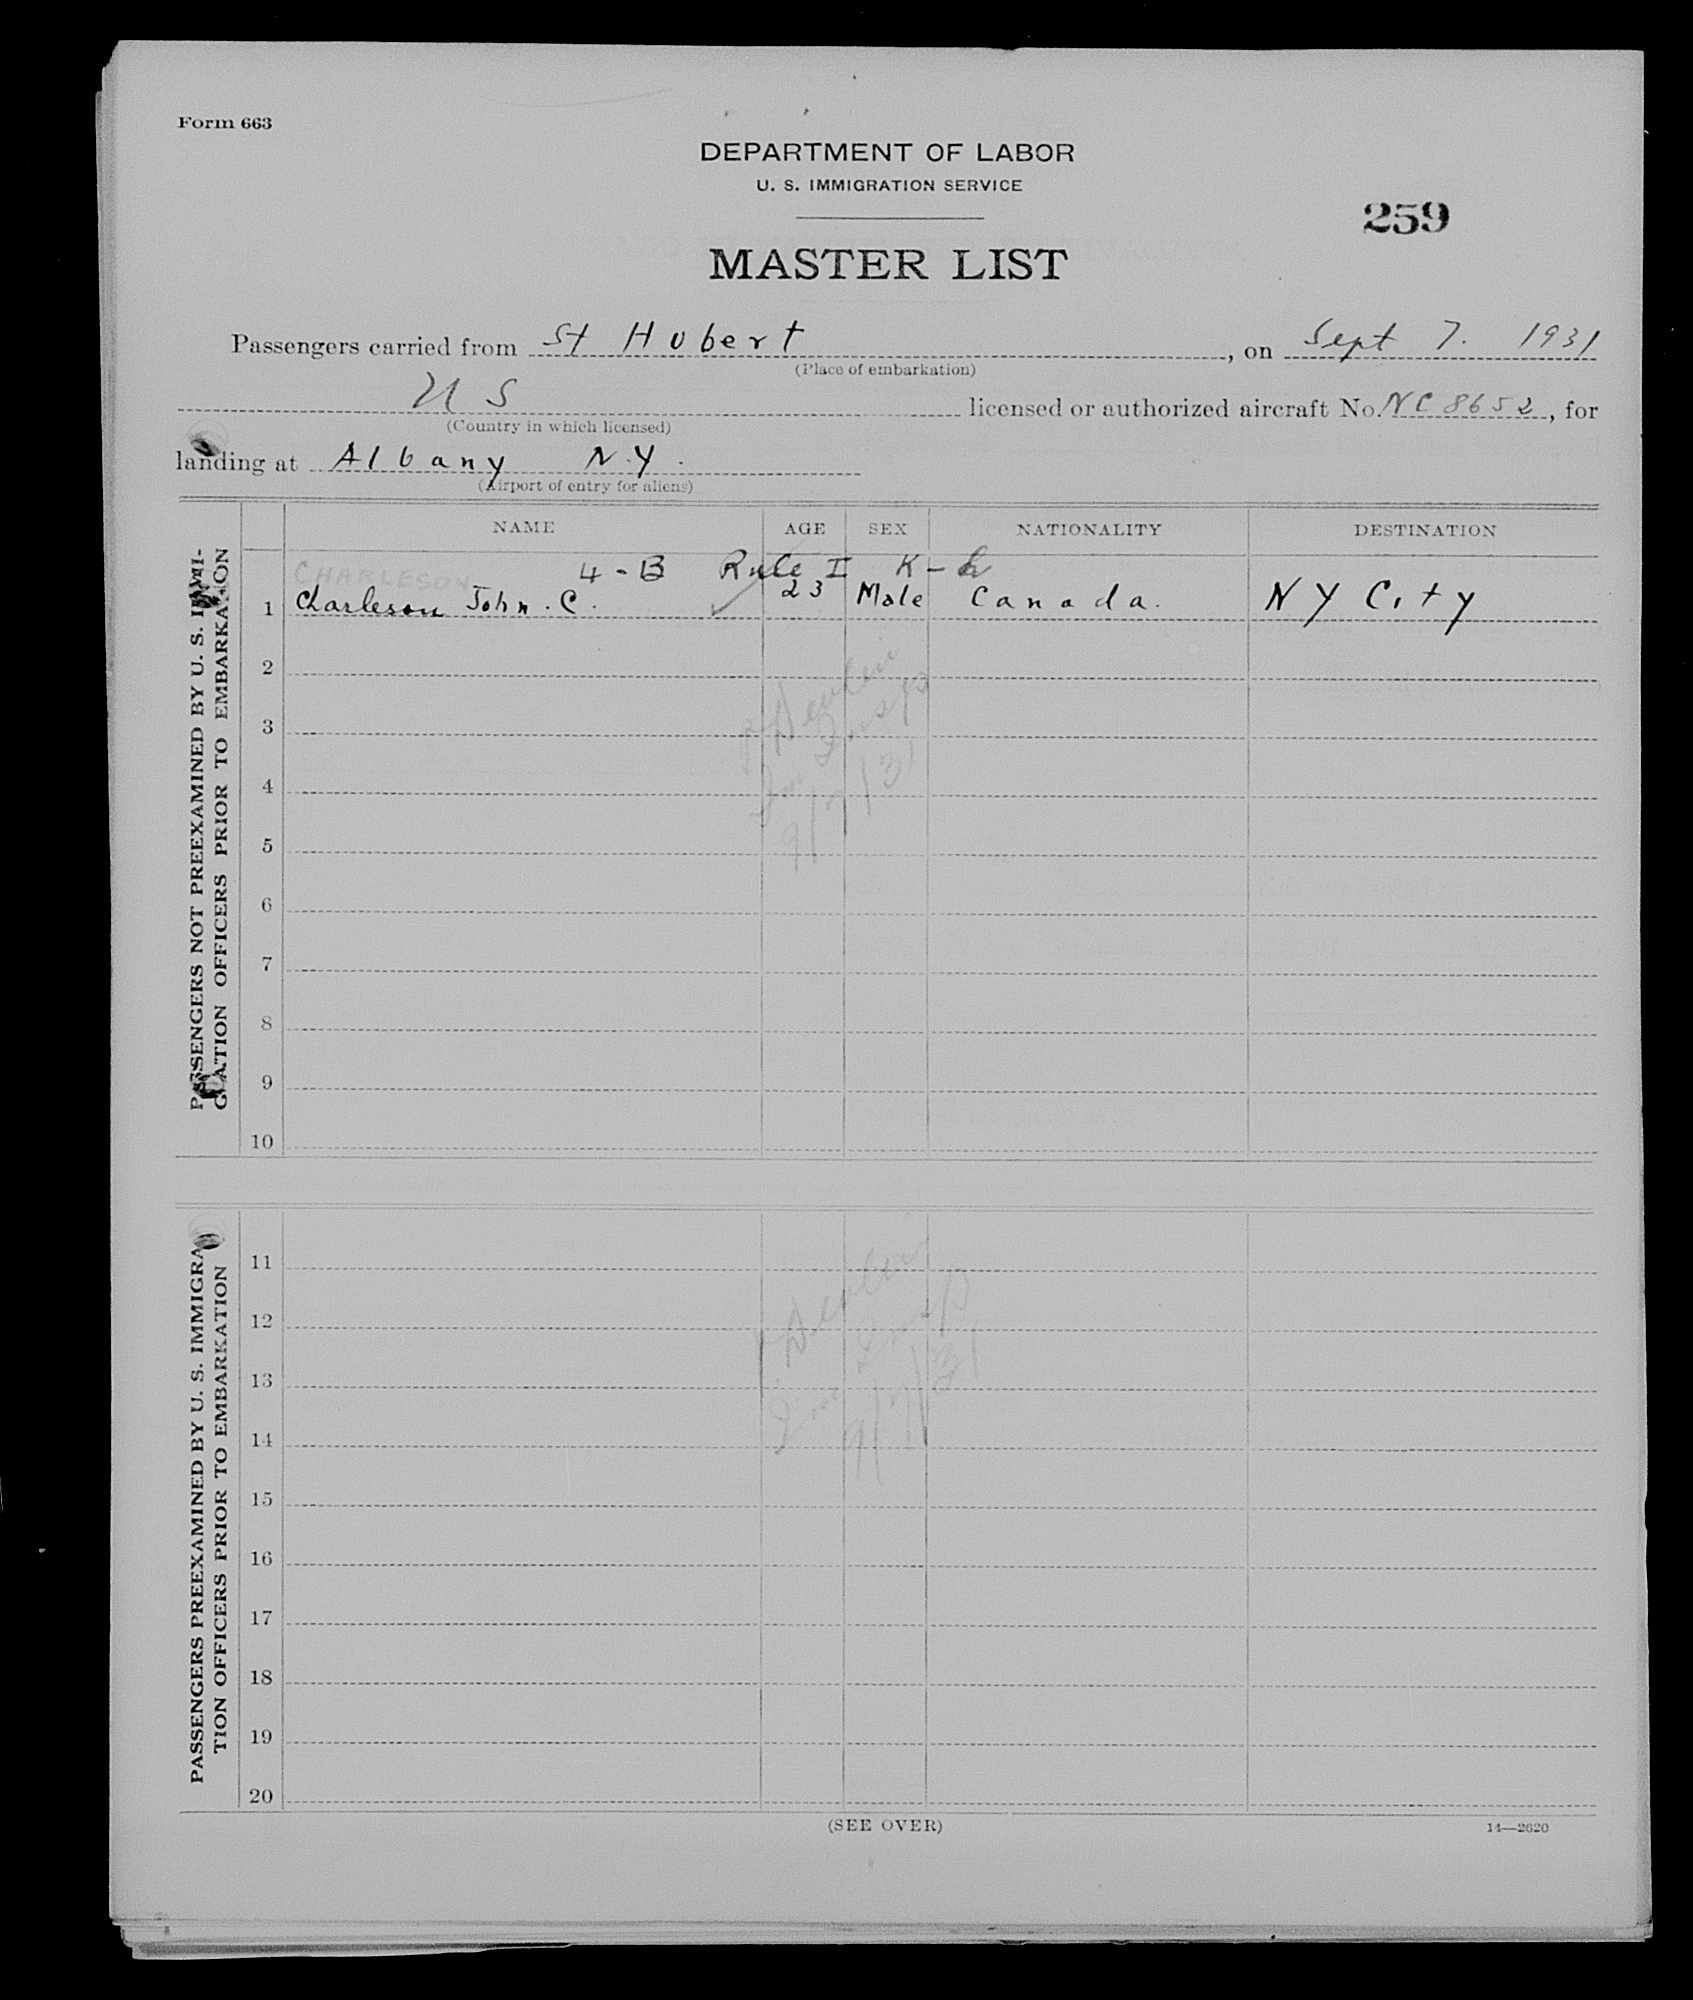 Form 663
DEPARTMENT OF LABOR
U. S. IMMIGRATION SERVICE
259
MASTER LIST
Passengers carried from St Hubert, on Sept 7. 1931
(Place of embarkation)
U S licensed or authorized aircraft No. NC 8652, for
(Country in which licensed)
landing at Albany N.Y.
(Airport of entry for aliens)
PASSENGERS NOT PREEXAMINED BY U. S. IMMI-
GRATION OFFICERS PRIOR TO EMBARKATION
NAME AGE SEX NATIONALITY DESTINATION
CHARLESON 4-B Rule I K-
1 Charleson John. C. 23 Male Canada. NY City
2
3
4
5
6
7
8
9
10
9/7/31
PASSENGERS PREEXAMINED BY U. S. IMMIGRA-
TION OFFICERS PRIOR TO EMBARKATION
11
12
13
14
15
16
17
18
19
20
9/7/31
(SEE OVER)
14—2620